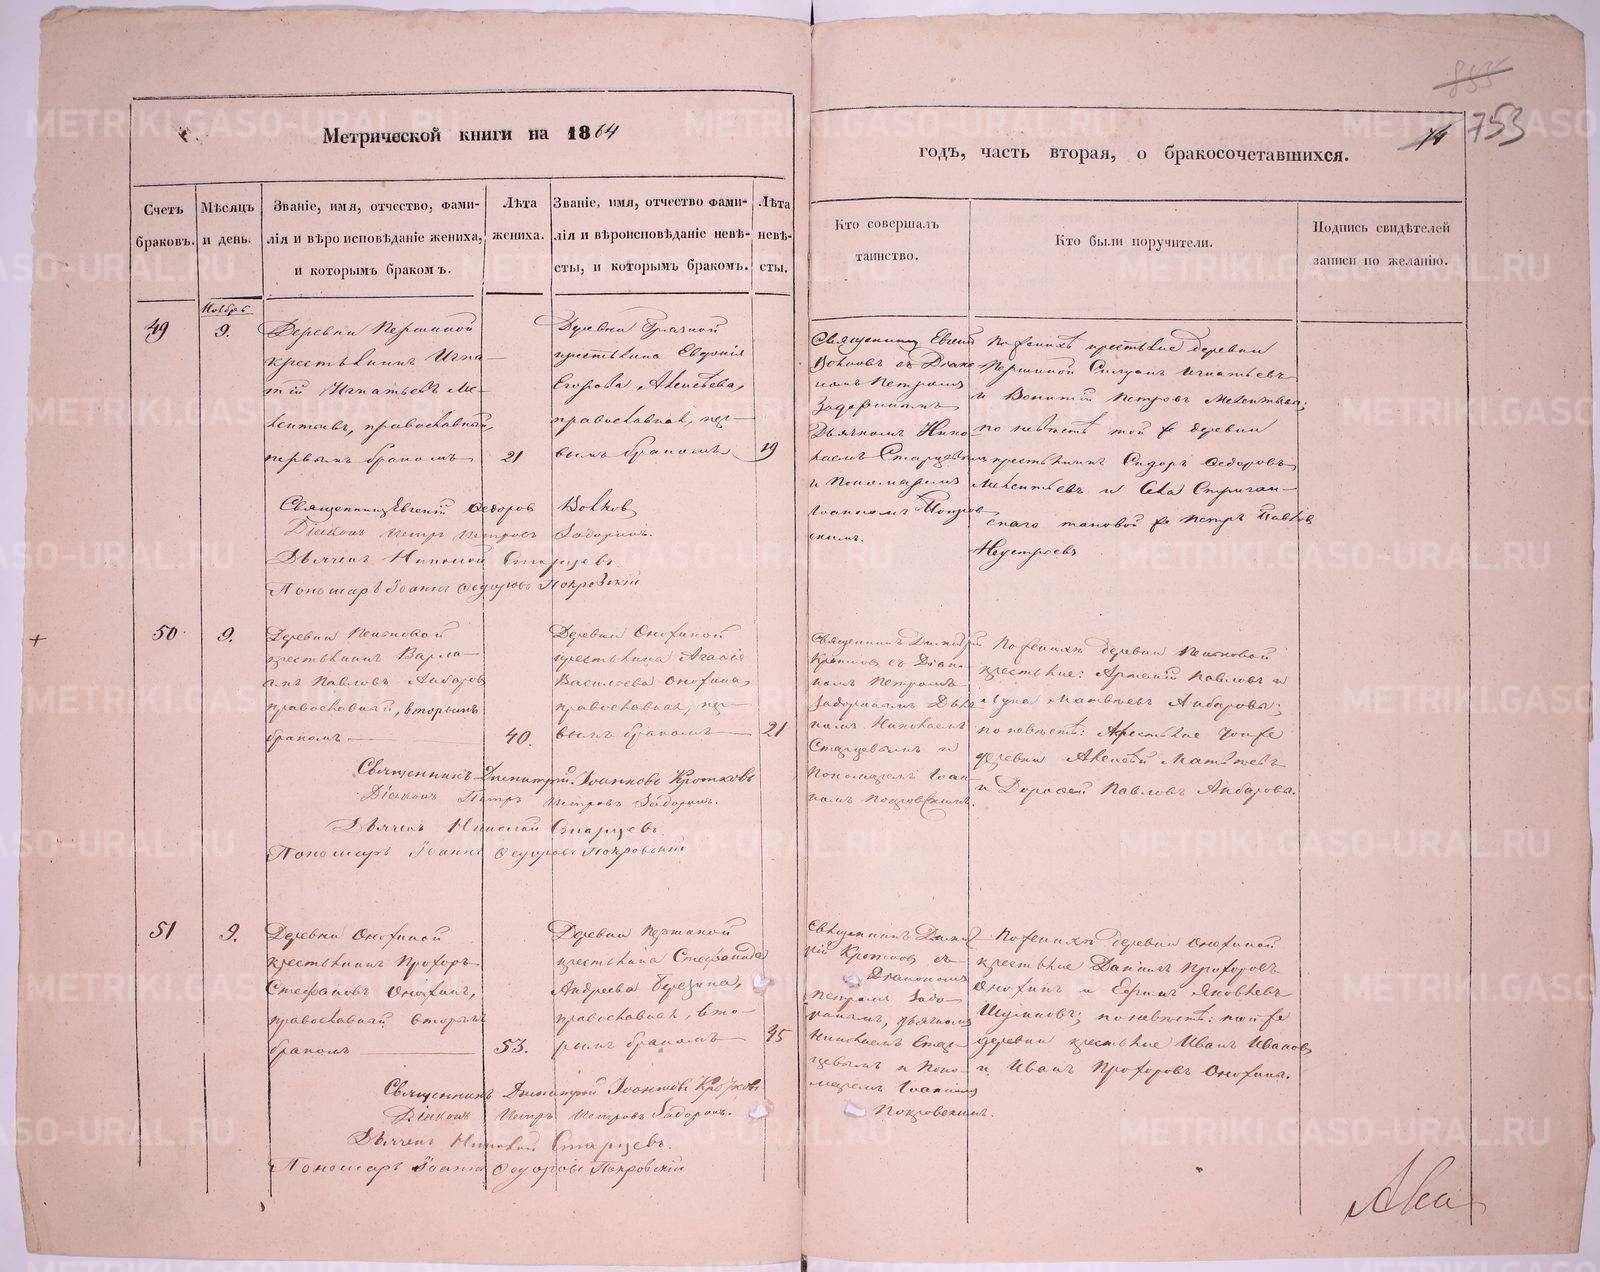 855
753
Метрической книги на 1864
годъ, часть вторая, о бракосочетавшихся.
Счетъ браковъ.
Мѣсяцъ и день.
Званіе, имя, отчество, фами-
лія и вѣроисповѣданіе жениха,
и которымъ бракомъ.
Лѣта
жениха.
Званіе, имя, отчество фами-
лія и вѣроисповѣданіе невѣ-
сты, и которымъ бракомъ.
Лѣта
невѣ-
сты.
Кто совершалъ
таинство.
Кто были поручители.
Подпись свидѣтелей
записи по желанію.
Ноябрь
49
9.
Деревни Першиной
крестьянинъ Игна-
тій Игнатьевъ Ме-
лентьевъ, православный,
первымъ бракомъ
21
Деревни Грязной
крестьянка Евдокія
Егорова
православная, пер-
вымъ бракомъ
19
Священникъ Евгеній
Волковъ съ Діако-
номъ Петромъ
Задоринымъ
Дьячкомъ Нико-
лаемъ Старцевымъ
и Пономаремъ
Іоанномъ Покров-
скимъ.
По женихѣ крестьяне деревни
Першиной Игнатьевъ
и Петровъ Мелентьевы;
по невѣстѣ той же деревни
крестьянинъ Сидоръ Федоровъ
Мелентьевъ и
Петръ Павловъ
Неустроевъ
Священникъ Евгеній Федоров Волков
Діаконъ Петръ Петровъ Задоринъ.
Дьячекъ Николай Старцевъ.
Пономарь Іоаннъ Федоровъ Покровскій
50
9.
Деревни
крестьянинъ Варла-
амъ Павловъ Амбаровъ
православный, вторымъ
бракомъ
40.
Деревни Онохиной
крестьянка Агафія
Васильева Онохина,
православная, пер-
вымъ бракомъ
21
Священникъ Димитрій
Кротковъ съ Діако-
номъ Петромъ
Задоринымъ Дьяч-
комъ Николаемъ
Старцевымъ и
Пономаремъ Іоан-
номъ Покровскимъ.
По женихѣ деревни
крестьяне: Павловъ и
Лука Матвѣевъ Амбаровы;
по невѣстѣ: крестьяне той же
деревни Алексѣй Матвѣевъ
и Дорофей Павловъ Амбарова.
Священникъ Димитрій Іоанновъ Кротковъ
Діаконъ Петръ Петровъ Задоринъ.
Дьячекъ Николай Старцевъ.
Пономарь Іоаннъ Федоровъ Покровскій
51
9.
Деревни Онохиной
крестьянинъ Прохоръ
Стефановъ Онохинъ,
православный вторымъ
бракомъ
53.
Деревни Першиной
крестьянка Стефанида
Андреева Березина,
православная, вто-
рымъ бракомъ
45
Священникъ Димит-
рій Кротковъ съ
Діакономъ
Петромъ Задо-
ринымъ, дьячкомъ
Николаемъ Стар-
цевымъ и Поно-
маремъ Іоанномъ
Покровскимъ.
По женихѣ деревни Онохиной
крестьяне Даніилъ Прохоровъ
Онохинъ и Ефимъ Яковлевъ
Шумковъ; по невѣстѣ: той же
деревни крестьяне Иванъ Ивановъ
и Иванъ Прохоровъ Онохины.
Священникъ Димитрій Іоанновъ Кротковъ
Діаконъ Петръ Петровъ Задоринъ.
Дьячекъ Николай Старцевъ.
Пономарь Іоаннъ Федоровъ Покровскій
METRIKI.GASO-URAL.RU